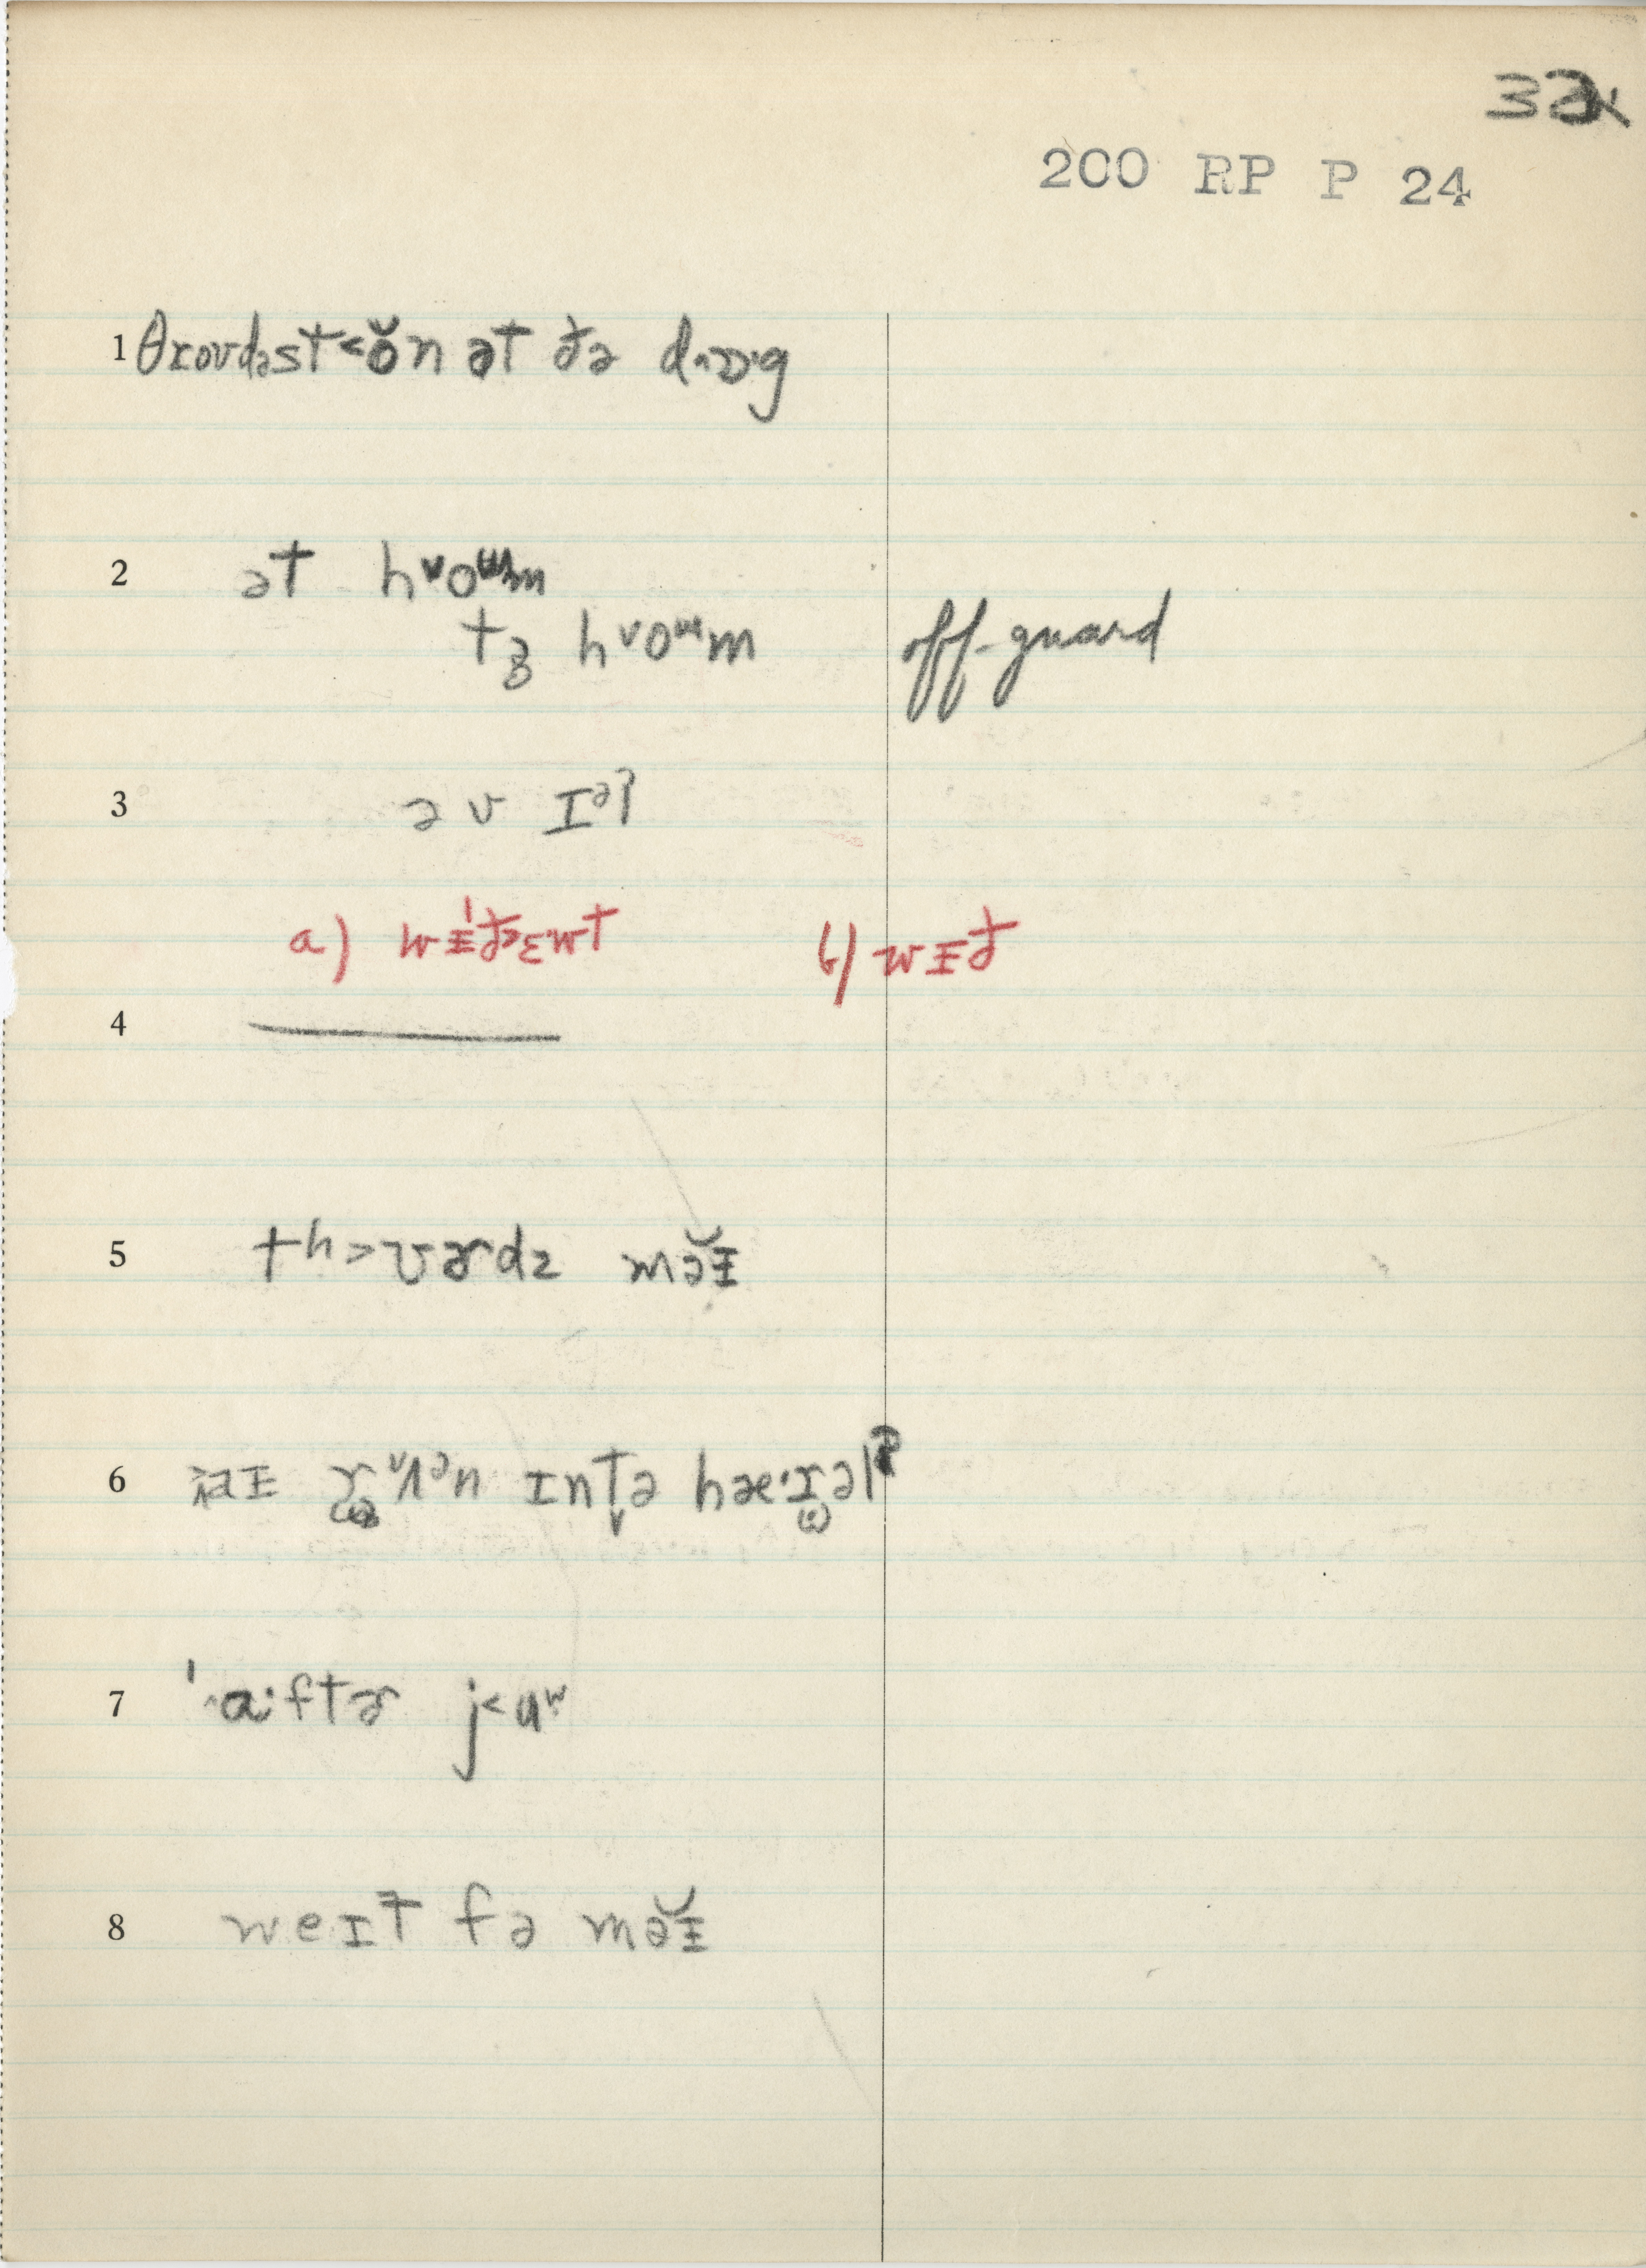 32x
200 RP P 24
1 θroʊdəst˂ŏn ət ðə dɒ·g
2 ət h˅oᵚm
tə h˅oᵚm off-guard
3 ə v ɪᵊl
a) wɪ̵́ð>ɛwt b) wɪ̵ð
4
5 tʰ>ʊɚdz məɪ̵̆
6 aɪ̵ r˅ʌᵊn ɪnt̬ə hæ·rəl
7 ˈa·ftɚ j˂uʷ
8 weɪt fə məɪ̵̆